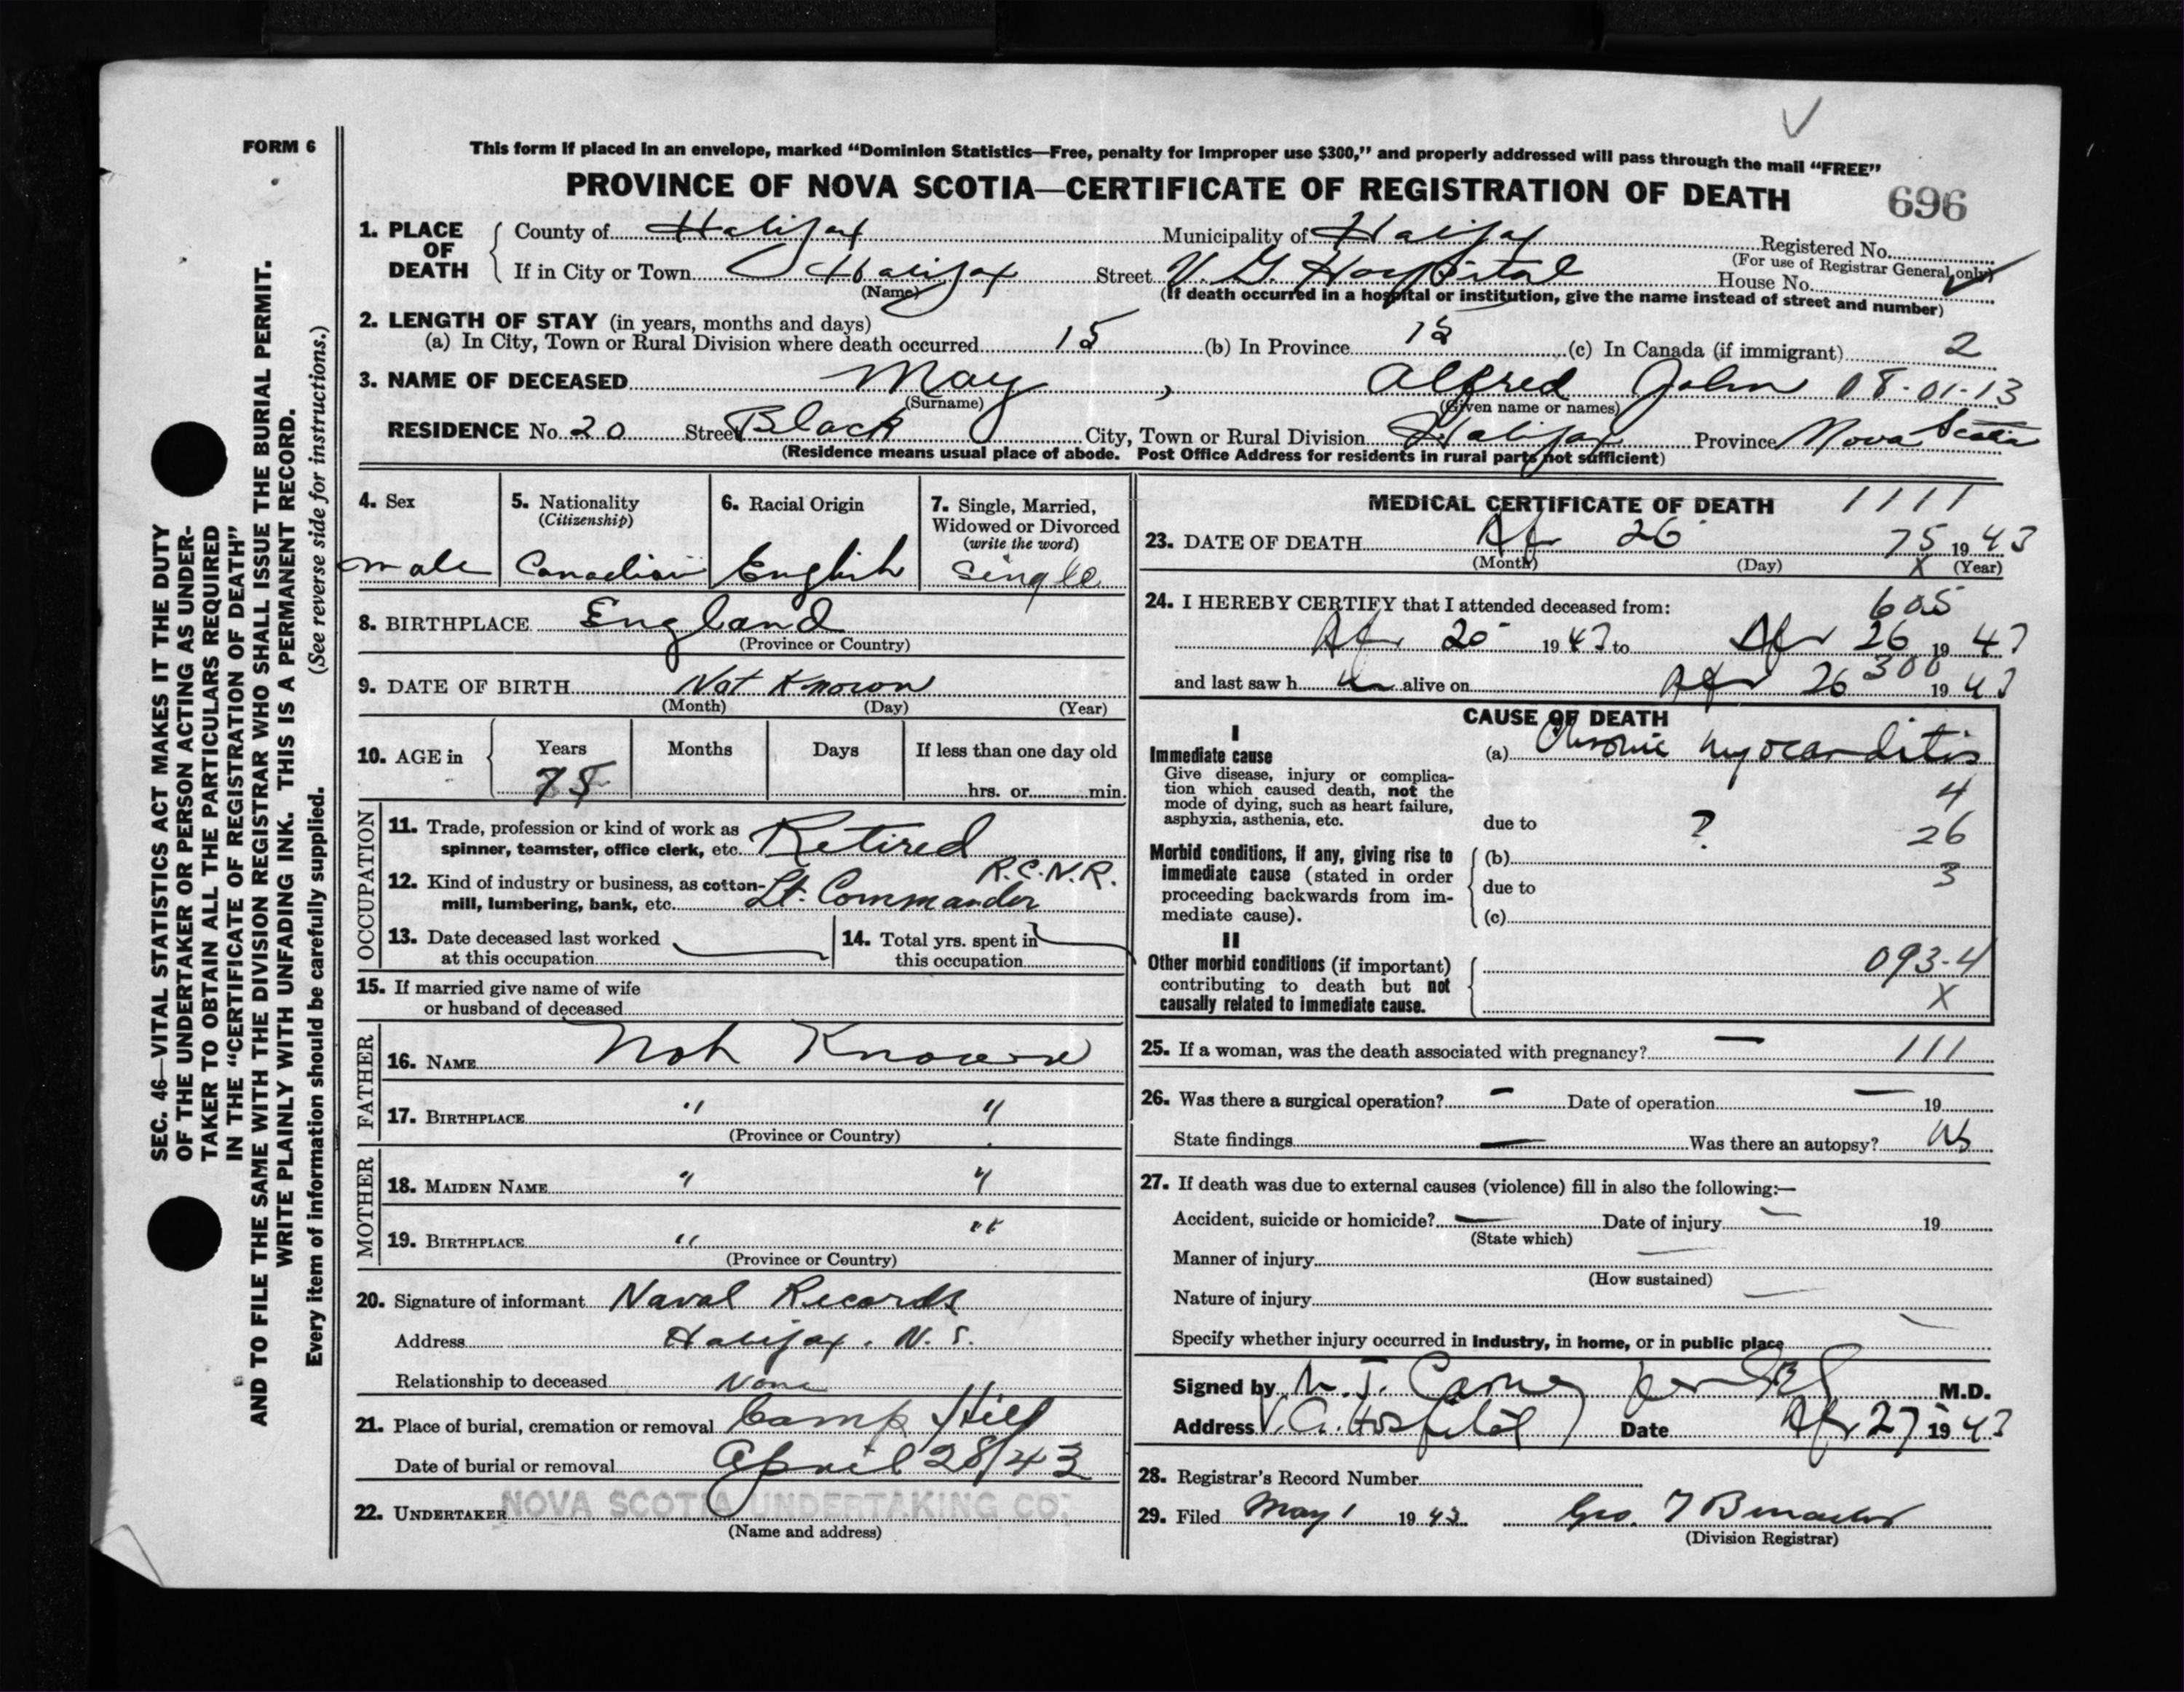 FORM 6
This form if placed in an envelope, marked "Dominion Statistics—Free, penalty for improper use $300," and properly addressed will pass through the mail "FREE"
PROVINCE OF NOVA SCOTIA—CERTIFICATE OF REGISTRATION OF DEATH
696
1. PLACE OF DEATH
County of Halifax Municipality of Halifax Registered No.
(For use of Registrar General only)
If in City or Town Halifax Street V. G. Hospital House No.
(Name) (If death occurred in a hospital or institution, give the name instead of street and number)
2. LENGTH OF STAY (in years, months and days)
(a) In City, Town or Rural Division where death occurred 15 (b) In Province 15 (c) In Canada (if immigrant) 2
3. NAME OF DECEASED May, Alfred John 08-01-13
(Surname) (Given name or names)
RESIDENCE No. 20 Street Black City, Town or Rural Division Halifax Province Nova Scotia
(Residence means usual place of abode. Post Office Address for residents in rural parts not sufficient)
4. Sex
male
5. Nationality
(Citizenship)
Canadian
6. Racial Origin
English
7. Single, Married,
Widowed or Divorced
(write the word)
Single
8. BIRTHPLACE England
(Province or Country)
9. DATE OF BIRTH Not Known
(Month) (Day) (Year)
10. AGE in
Years Months Days If less than one day old
75 hrs. or min.
OCCUPATION
11. Trade, profession or kind of work as
spinner, teamster, office clerk, etc. Retired
R.C.N.R.
12. Kind of industry or business, as cotton-
mill, lumbering, bank, etc. Lt. Commander
13. Date deceased last worked
at this occupation
14. Total yrs. spent in
this occupation
15. If married give name of wife
or husband of deceased
FATHER
16. NAME Not Known
17. BIRTHPLACE " "
(Province or Country)
MOTHER
18. MAIDEN NAME " "
19. BIRTHPLACE " "
(Province or Country)
20. Signature of informant Naval Records
Address Halifax, N. S.
Relationship to deceased None
21. Place of burial, cremation or removal Camp Hill
Date of burial or removal April 28/43
22. UNDERTAKER NOVA SCOTIA UNDERTAKING CO.
(Name and address)
MEDICAL CERTIFICATE OF DEATH 1111
23. DATE OF DEATH Apr 26 75 1943
(Month) (Day) X (Year)
24. I HEREBY CERTIFY that I attended deceased from: 605
Apr 20 1943 to Apr 26 1943
300
and last saw h alive on Apr 26 1943
CAUSE OF DEATH
I
Immediate cause
Give disease, injury or complica-
tion which caused death, not the
mode of dying, such as heart failure,
asphyxia, asthenia, etc.
(a) Chronic myocarditis
4
due to ? 26
Morbid conditions, if any, giving rise to
immediate cause (stated in order
proceeding backwards from im-
mediate cause).
(b)
3
due to
(c)
II
Other morbid conditions (if important)
contributing to death but not
causally related to immediate cause.
093-4
X
25. If a woman, was the death associated with pregnancy? — 111
26. Was there a surgical operation? - Date of operation — 19
State findings — Was there an autopsy?
27. If death was due to external causes (violence) fill in also the following:—
Accident, suicide or homicide? — Date of injury — 19
(State which)
Manner of injury —
(How sustained)
Nature of injury —
Specify whether injury occurred in industry, in home, or in public place
Signed by J. Carney per M.D.
Address V. G. Hospital Date Apr 27 1943
28. Registrar's Record Number
29. Filed May 1 1943 Geo.
(Division Registrar)
SEC. 46—VITAL STATISTICS ACT MAKES IT THE DUTY
OF THE UNDERTAKER OR PERSON ACTING AS UNDER-
TAKER TO OBTAIN ALL THE PARTICULARS REQUIRED
IN THE "CERTIFICATE OF REGISTRATION OF DEATH"
AND TO FILE THE SAME WITH THE DIVISION REGISTRAR WHO SHALL ISSUE THE BURIAL PERMIT.
WRITE PLAINLY WITH UNFADING INK. THIS IS A PERMANENT RECORD.
Every item of information should be carefully supplied. (See reverse side for instructions.)